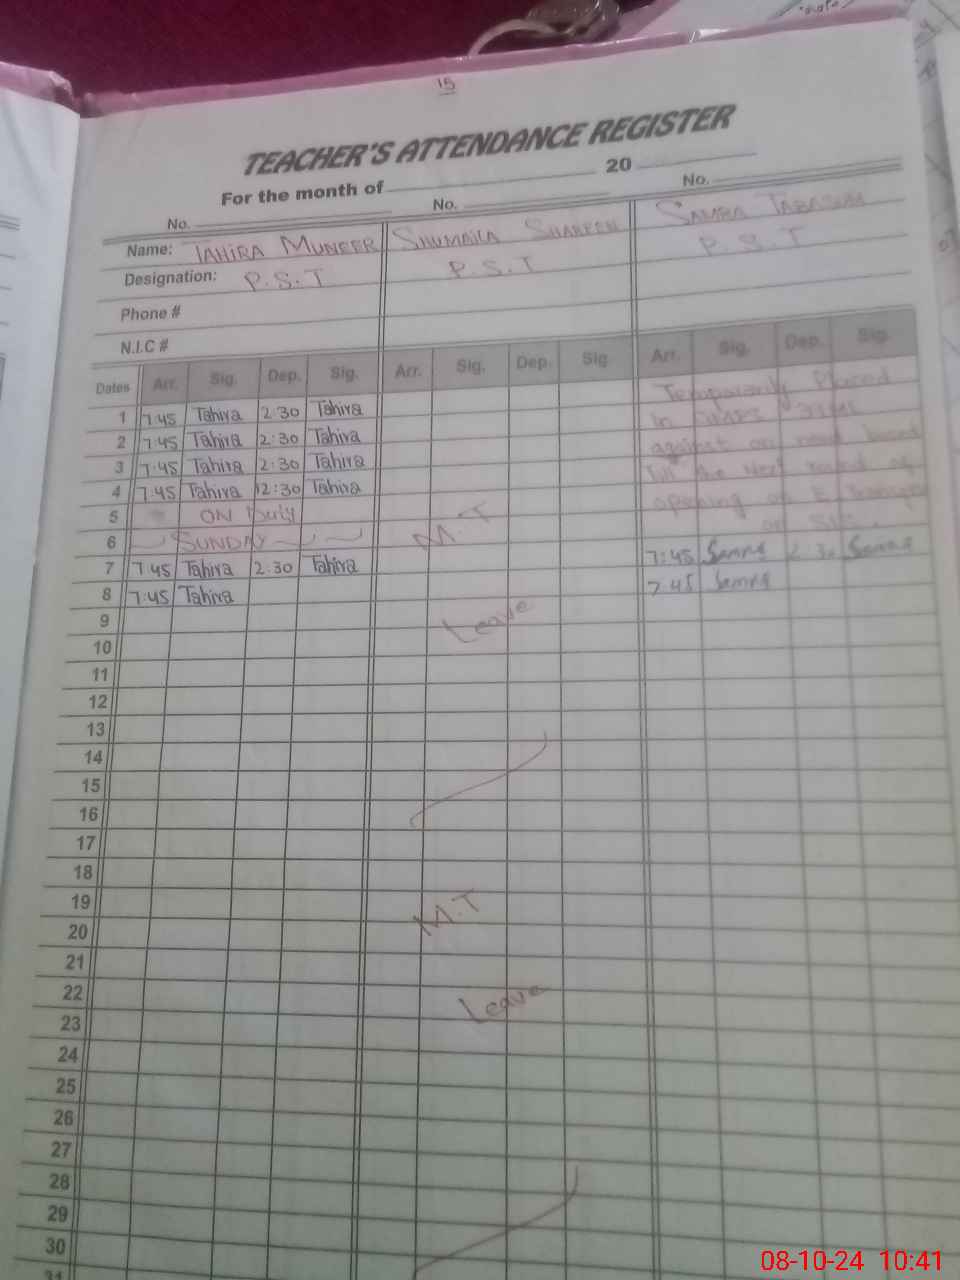 15
TEACHER'S ATTENDANCE REGISTER
For the month of 20
No. No. No.
Name: TAHIRA MUNEER SHUMAILA SHAHEEN SAMRA TABASUM
Designation: P.S.T P.S.T P.S.T
Phone #
N.I.C #
Dates Arr. Sig. Dep. Sig. Arr. Sig. Dep. Sig Arr. Sig. Dep. Sig.
Temporarily Placed
In
against on need based
Till the Next round of
opening of E Transfer
on SIS.
1 7:45 Tahira 2:30 Tahira
2 7:45 Tahira 2:30 Tahira
3 7:45 Tahira 2:30 Tahira
4 7:45 Tahira 12:30 Tahira
5 ON Duty
6 SUNDAY M.T
7 7:45 Tahira 2:30 Tahira 7:45 Samra 2:30 Samra
8 7:45 Tahira 7:45 Samra
9 Leave
10
11
12
13
14
15
16
17
18
19 M.T
20
21
22 Leave
23
24
25
26
27
28
29
30
31
08-10-24 10:41